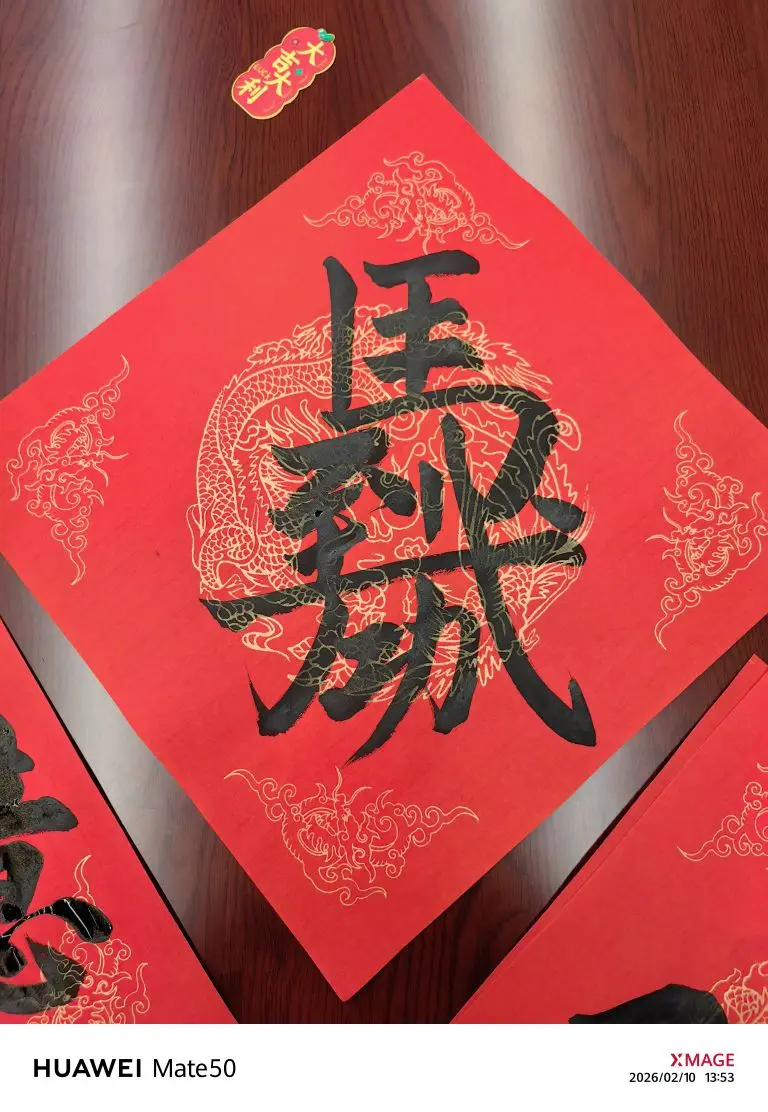 大吉大利
馬到成功
HUAWEI Mate50
XMAGE
2026/02/10 13:53